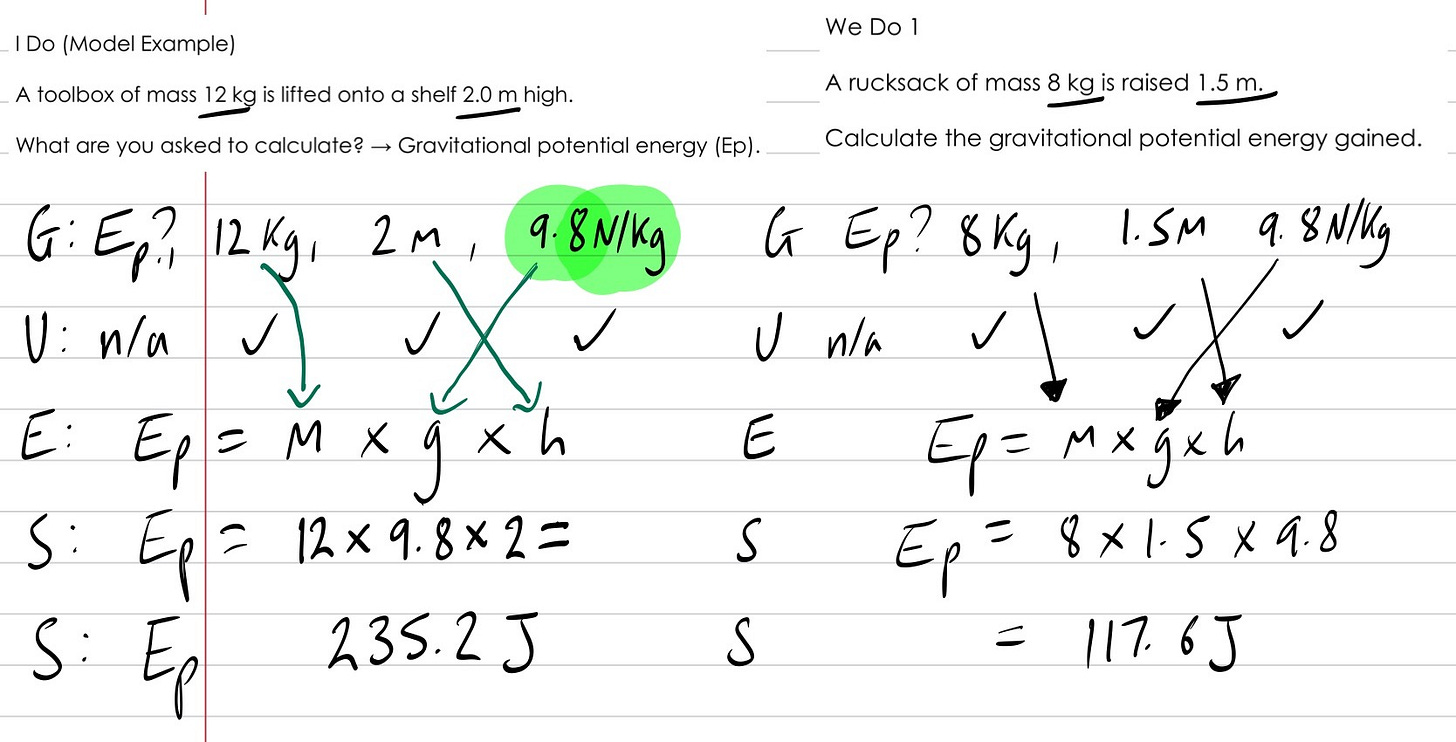 I Do (Model Example)
A toolbox of mass 12 kg is lifted onto a shelf 2.0 m high.
What are you asked to calculate? → Gravitational potential energy (Ep).
G: Ep?, 12 Kg, 2 m, 9.8 N/Kg
U: n/a ✓ ✓ ✓
E: Ep = M x g x h
S: Ep = 12 x 9.8 x 2 =
S: Ep 235.2 J
We Do 1
A rucksack of mass 8 kg is raised 1.5 m.
Calculate the gravitational potential energy gained.
G Ep? 8 Kg, 1.5 M 9.8 N/Kg
U n/a ✓ ✓ ✓
E Ep = M x g x h
S Ep = 8 x 1.5 x 9.8
S = 117.6 J